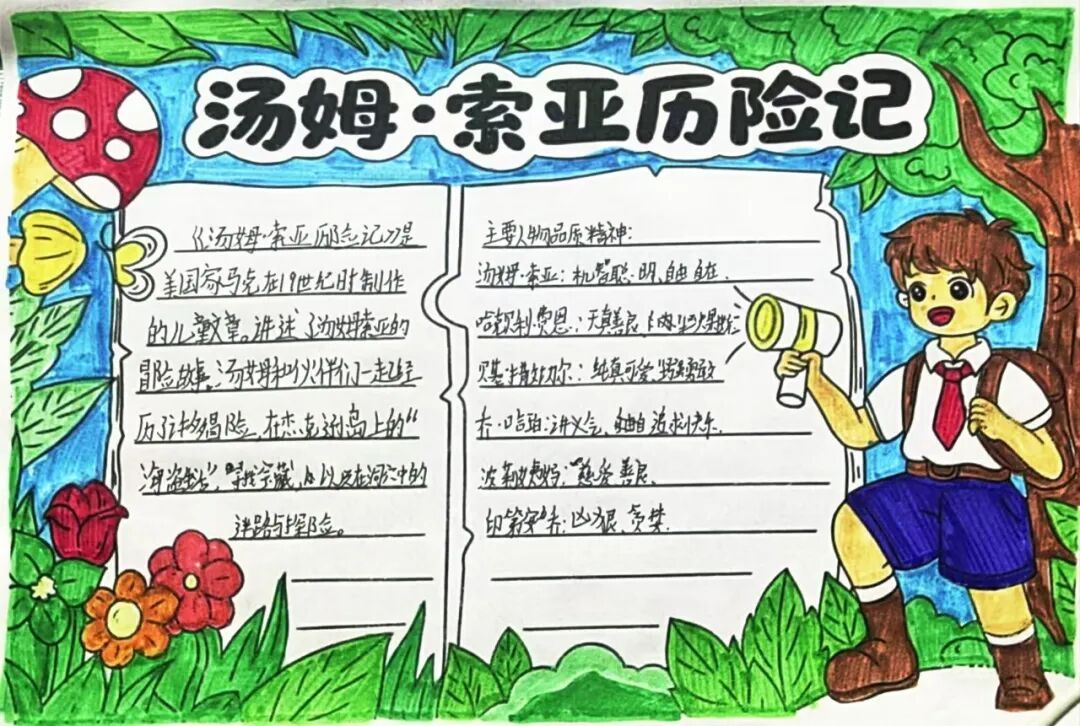 汤姆·索亚历险记
《汤姆·索亚历险记》是
美国家马克在19世纪时制作
的儿童文章。讲述了汤姆索亚的
冒险故事,汤姆和伙伴们一起经
历了许多冒险,在杰克逊岛上的“
海盗生活”,寻找宝藏,以及在洞穴中的
迷路与探险。
主要人物品质精神:
汤姆·索亚:机智聪明,自由自在.
哈克贝利·费恩:天真善良
贝基·撒切尔:纯真可爱,坚强勇敢
乔·哈珀:讲义气、自由追求快乐.
波莉姨妈:慈爱善良.
印第安·乔:凶狠、贪婪.